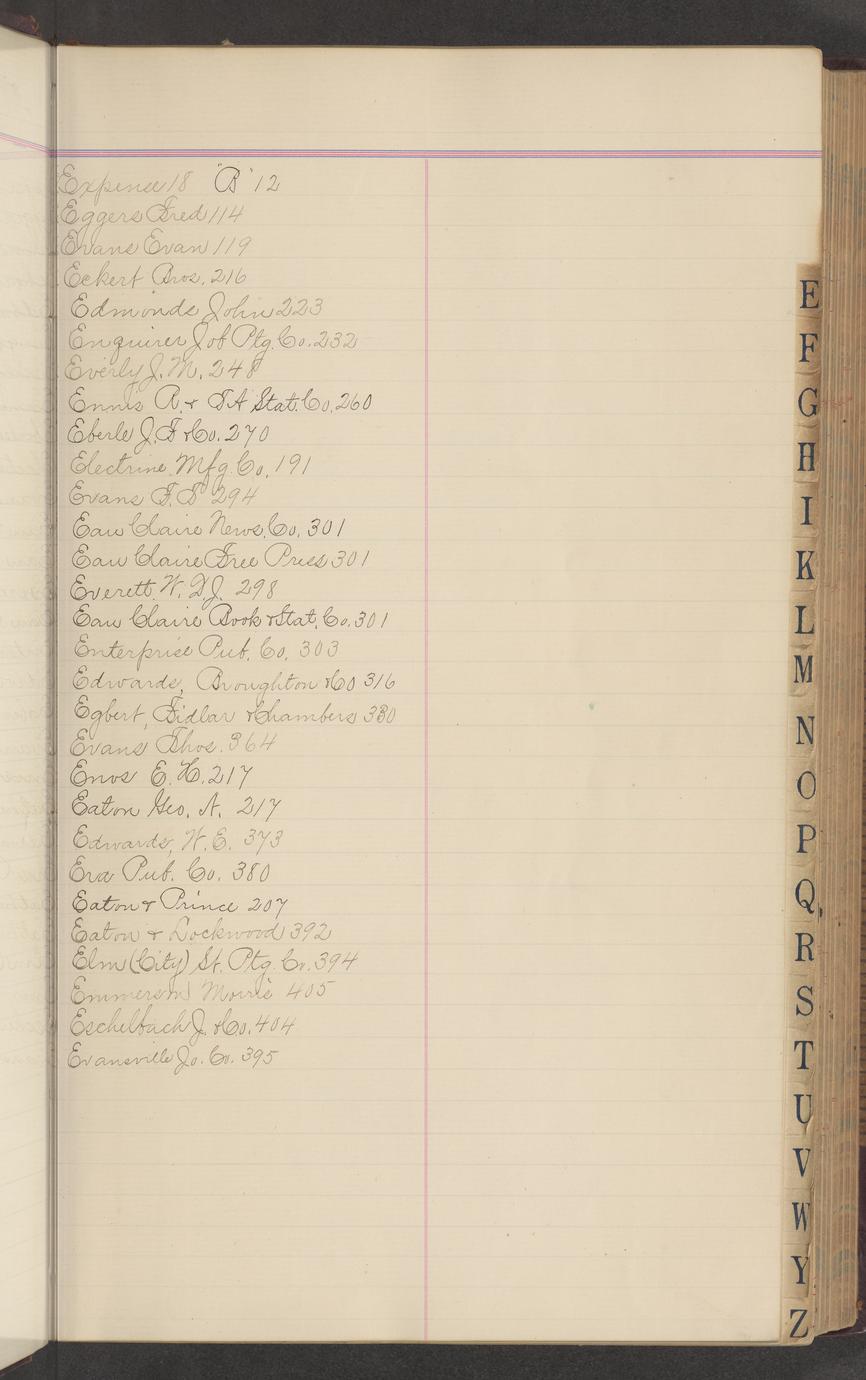 Expense 18 "B" 12
Eggers Fred 114
Evans Evan 119
Eckert Bros. 216
Edmonds John 223
Enquirer Job Ptg. Co. 232
Everly J. M. 248
Ennis R. & F A Stat. Co. 260
Eberle J. F & Co. 270
Electrine Mfg. Co. 191
Evans F. D 294
Eau Claire News Co. 301
Eau Claire Free Press 301
Everett W. D. J. 298
Eau Claire Book & Stat. Co. 301
Enterprise Pub. Co. 303
Edwards, Broughton & Co 316
Egbert, Fidlar & Chambers 330
Evans Thos. 364
Enos E. H. 217
Eaton Geo. N. 217
Edwards, W. E. 373
Era Pub. Co. 380
Eaton & Prince 207
Eaton & Lockwood 392
Elm (City) St. Ptg. Co. 394
Emmerson Morris 405
Eschelbach J. & Co. 404
Evansville Jo. Co. 395
E
F
G
H
I
K
L
M
N
O
P
Q
R
S
T
U
V
W
Y
Z